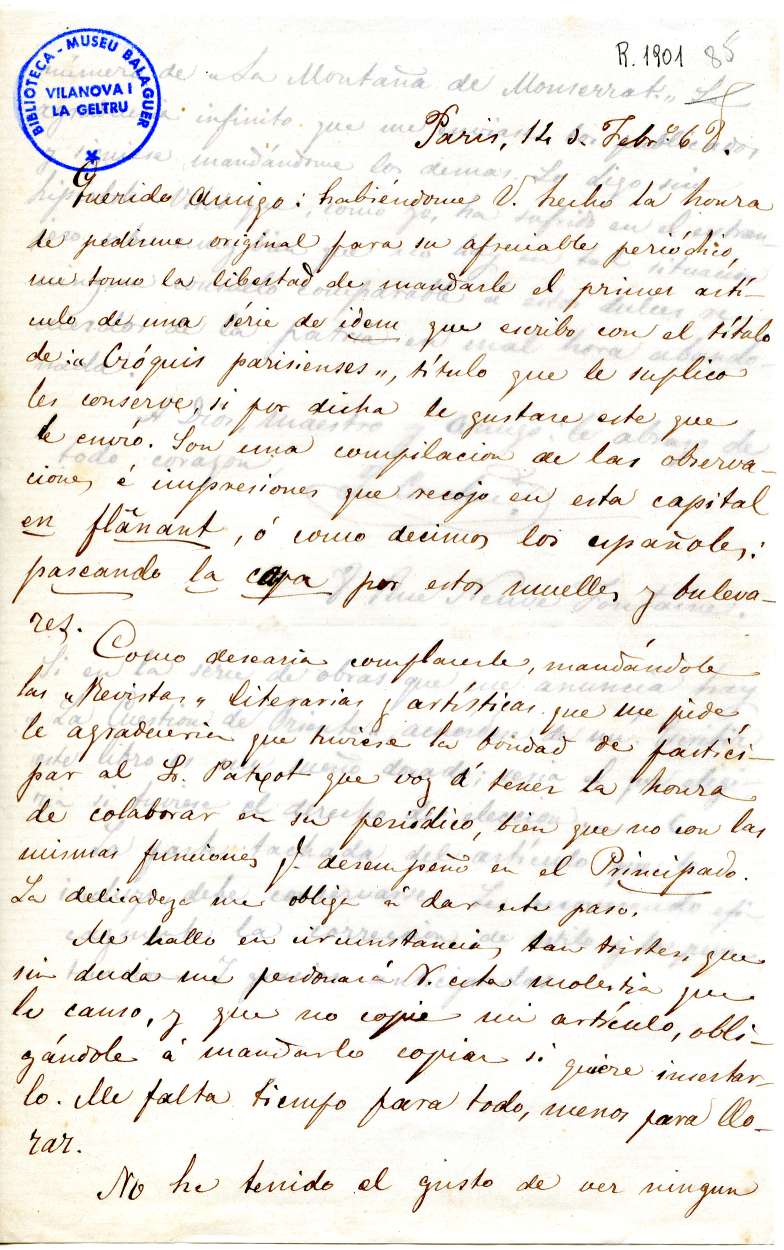 R. 1901 85
BIBLIOTECA - MUSEU BALAGUER
VILANOVA I
LA GELTRU
Paris, 12 d. Febrº 6
Querido amigo: habiéndome V. hecho la honra
de pedirme original para su apreciable periódico,
me tomo la libertad de mandarle el primer artí-
culo de una série de idem que escribo con el título
de "Cróquis parisienses", título que le suplico
les conserve, si por dicha le gustare este que
le envió. Son una compilacion de las observa-
ciones é impresiones que recojo en esta capital
en flânant, ó como decimos los españoles:
paseando la capa por estos muelles y buleva-
res.
Como desearia complacerle, mandándole
las "Revistas" literarias y artísticas que me pide,
le agradeceria que tuviese la bondad de partici-
par al Sr. Patxot que voy á tener la honra
de colaborar en su periódico, bien que no con las
mismas funciones q. desempeño en el Principado.
La delicadeza me obliga á dar este paso.
Me hallo en circunstancias tan tristes, que
sin duda me perdonará V. esta molestia que
le causo, y que no copie mi artículo, obli-
gándole á mandarlo copiar si quiere insertar-
lo. Me falta tiempo para todo, menos para llo-
rar.
No he tenido el gusto de ver ningun